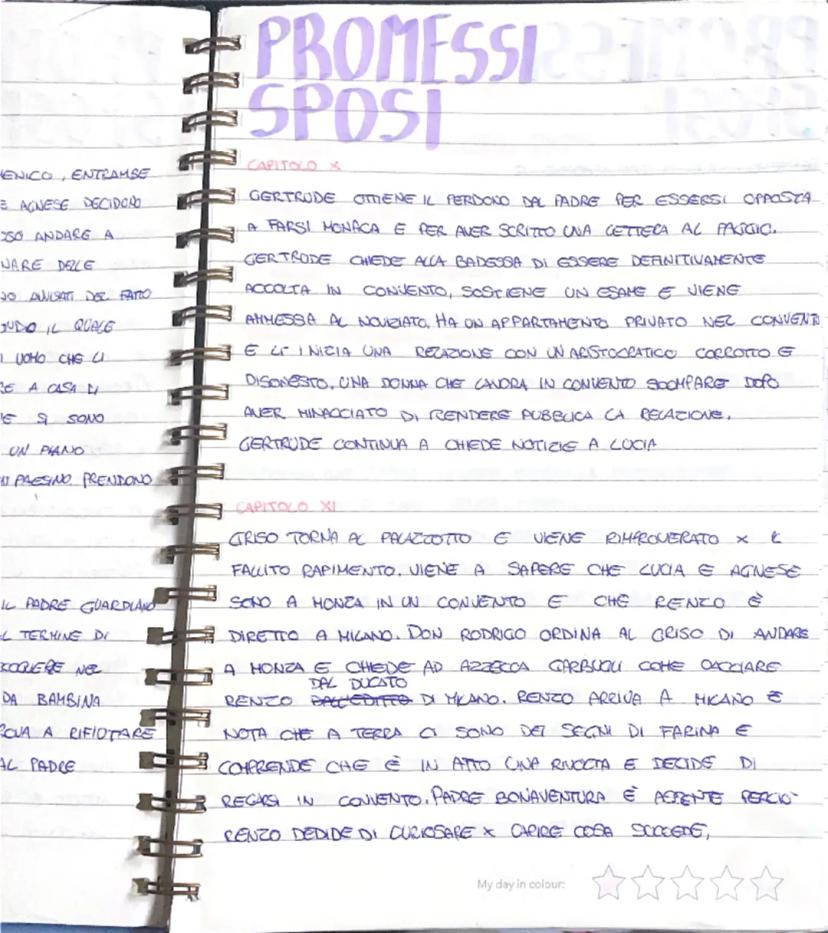 ENICO, ENTRAMBE
E AGNESE DECIDONO
OSO ANDARE A
NARE DELLE
NO AVVISATI DEL FATTO
IL QUALE
UOMO CHE LI
RE A CASA DI
E SI SONO
UN PIANO
PAESINO PRENDONO
IL PADRE GUARDIANO
L TERMINE DI
COGLIERE NEL
DA BAMBINA
A RIFIUTARE
AL PADRE
PROMESSI
SPOSI
CAPITOLO X
GERTRUDE OTTIENE IL PERDONO DAL PADRE PER ESSERSI OPPOSTA
A FARSI MONACA E PER AVER SCRITTO UNA LETTERA AL PAGGIO.
GERTRUDE CHIEDE ALLA BADESSA DI ESSERE DEFINITIVAMENTE
ACCOLTA IN CONVENTO, SOSTIENE UN ESAME E VIENE
AMMESSA AL NOVIZIATO. HA UN APPARTAMENTO PRIVATO NEL CONVENTO
E LI' INIZIA UNA RELAZIONE CON UN ARISTOCRATICO CORROTTO E
DISONESTO. UNA DONNA CHE LAVORA IN CONVENTO SCOMPARE DOPO
AVER MINACCIATO DI RENDERE PUBBLICA LA RELAZIONE.
GERTRUDE CONTINUA A CHIEDE NOTIZIE A LUCIA
CAPITOLO XI
GRISO TORNA AL PALAZZOTTO E VIENE RIMPROVERATO x IL
FALLITO RAPIMENTO. VIENE A SAPERE CHE LUCIA E AGNESE
SONO A MONZA IN UN CONVENTO E CHE RENZO È
DIRETTO A MILANO. DON RODRIGO ORDINA AL GRISO DI ANDARE
A MONZA E CHIEDE AD AZZECCA GARBUGLI COME CACCIARE
DAL DUCATO
RENZO DALL'EDITTO DI MILANO. RENZO ARRIVA A MILANO E
NOTA CHE A TERRA CI SONO DEI SEGNI DI FARINA E
COMPRENDE CHE È IN ATTO UNA RIVOLTA E DECIDE DI
RECARSI IN CONVENTO. PADRE BONAVENTURA È ASSENTE PERCIO'
RENZO DEDIDE DI CURIOSARE x CAPIRE COSA SUCCEDE,
My day in colour: